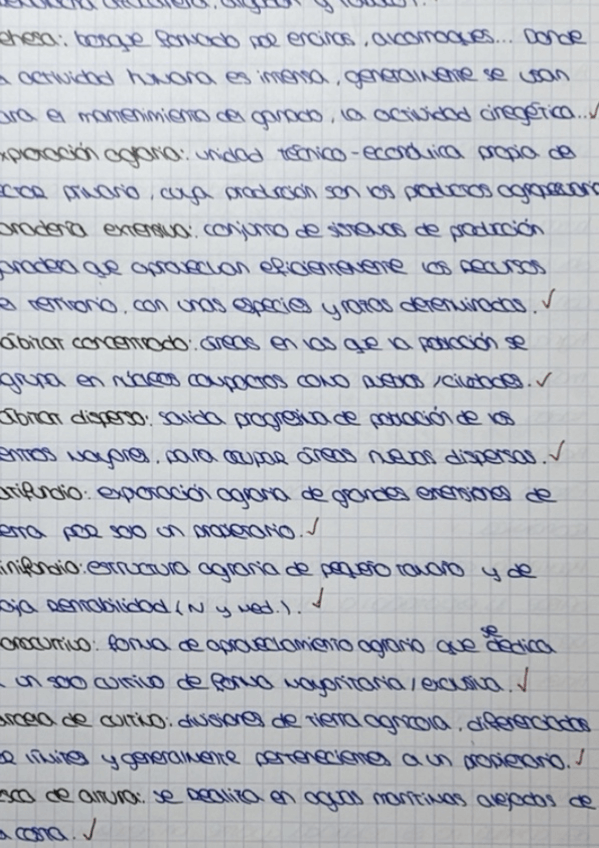 ehesa: bosque formado por encinas, alcornoques... Donde
a actividad humana es intensa, generalmente se usan
ara el mantenimiento del ganado, la actividad cinegética...✓
xplotación agraria: unidad técnico-económica propia de
ctor primario, cuya producción son los productos agropecuario
anadería extensiva: conjunto de sistemas de producción
anadera que aprovechan eficientemente los recursos
e territorio, con unas especies y razas determinadas. ✓
ábitat concentrado: áreas en las que la población se
grupa en núcleos compactos como pueblos/ciudades. ✓
ábitat disperso: salida progresiva de población de los
entros mayores, para ocupar áreas nuevas dispersas. ✓
atifundio: explotación agraria de grandes extensiones de
erra por solo un propietario. ✓
inifundio: estructura agraria de pequeño tamaño y de
aja rentabilidad (N y med.). ✓
onocultivo: forma de aprovechamiento agrario que se dedica
a un solo cultivo de forma mayoritaria/exclusiva. ✓
arcela de cultivo: divisiones de tierra agrícola, diferenciadas
or límites y generalmente pertenecientes a un propietario. ✓
esca de altura: se realiza en aguas marítimas alejadas de
a costa. ✓